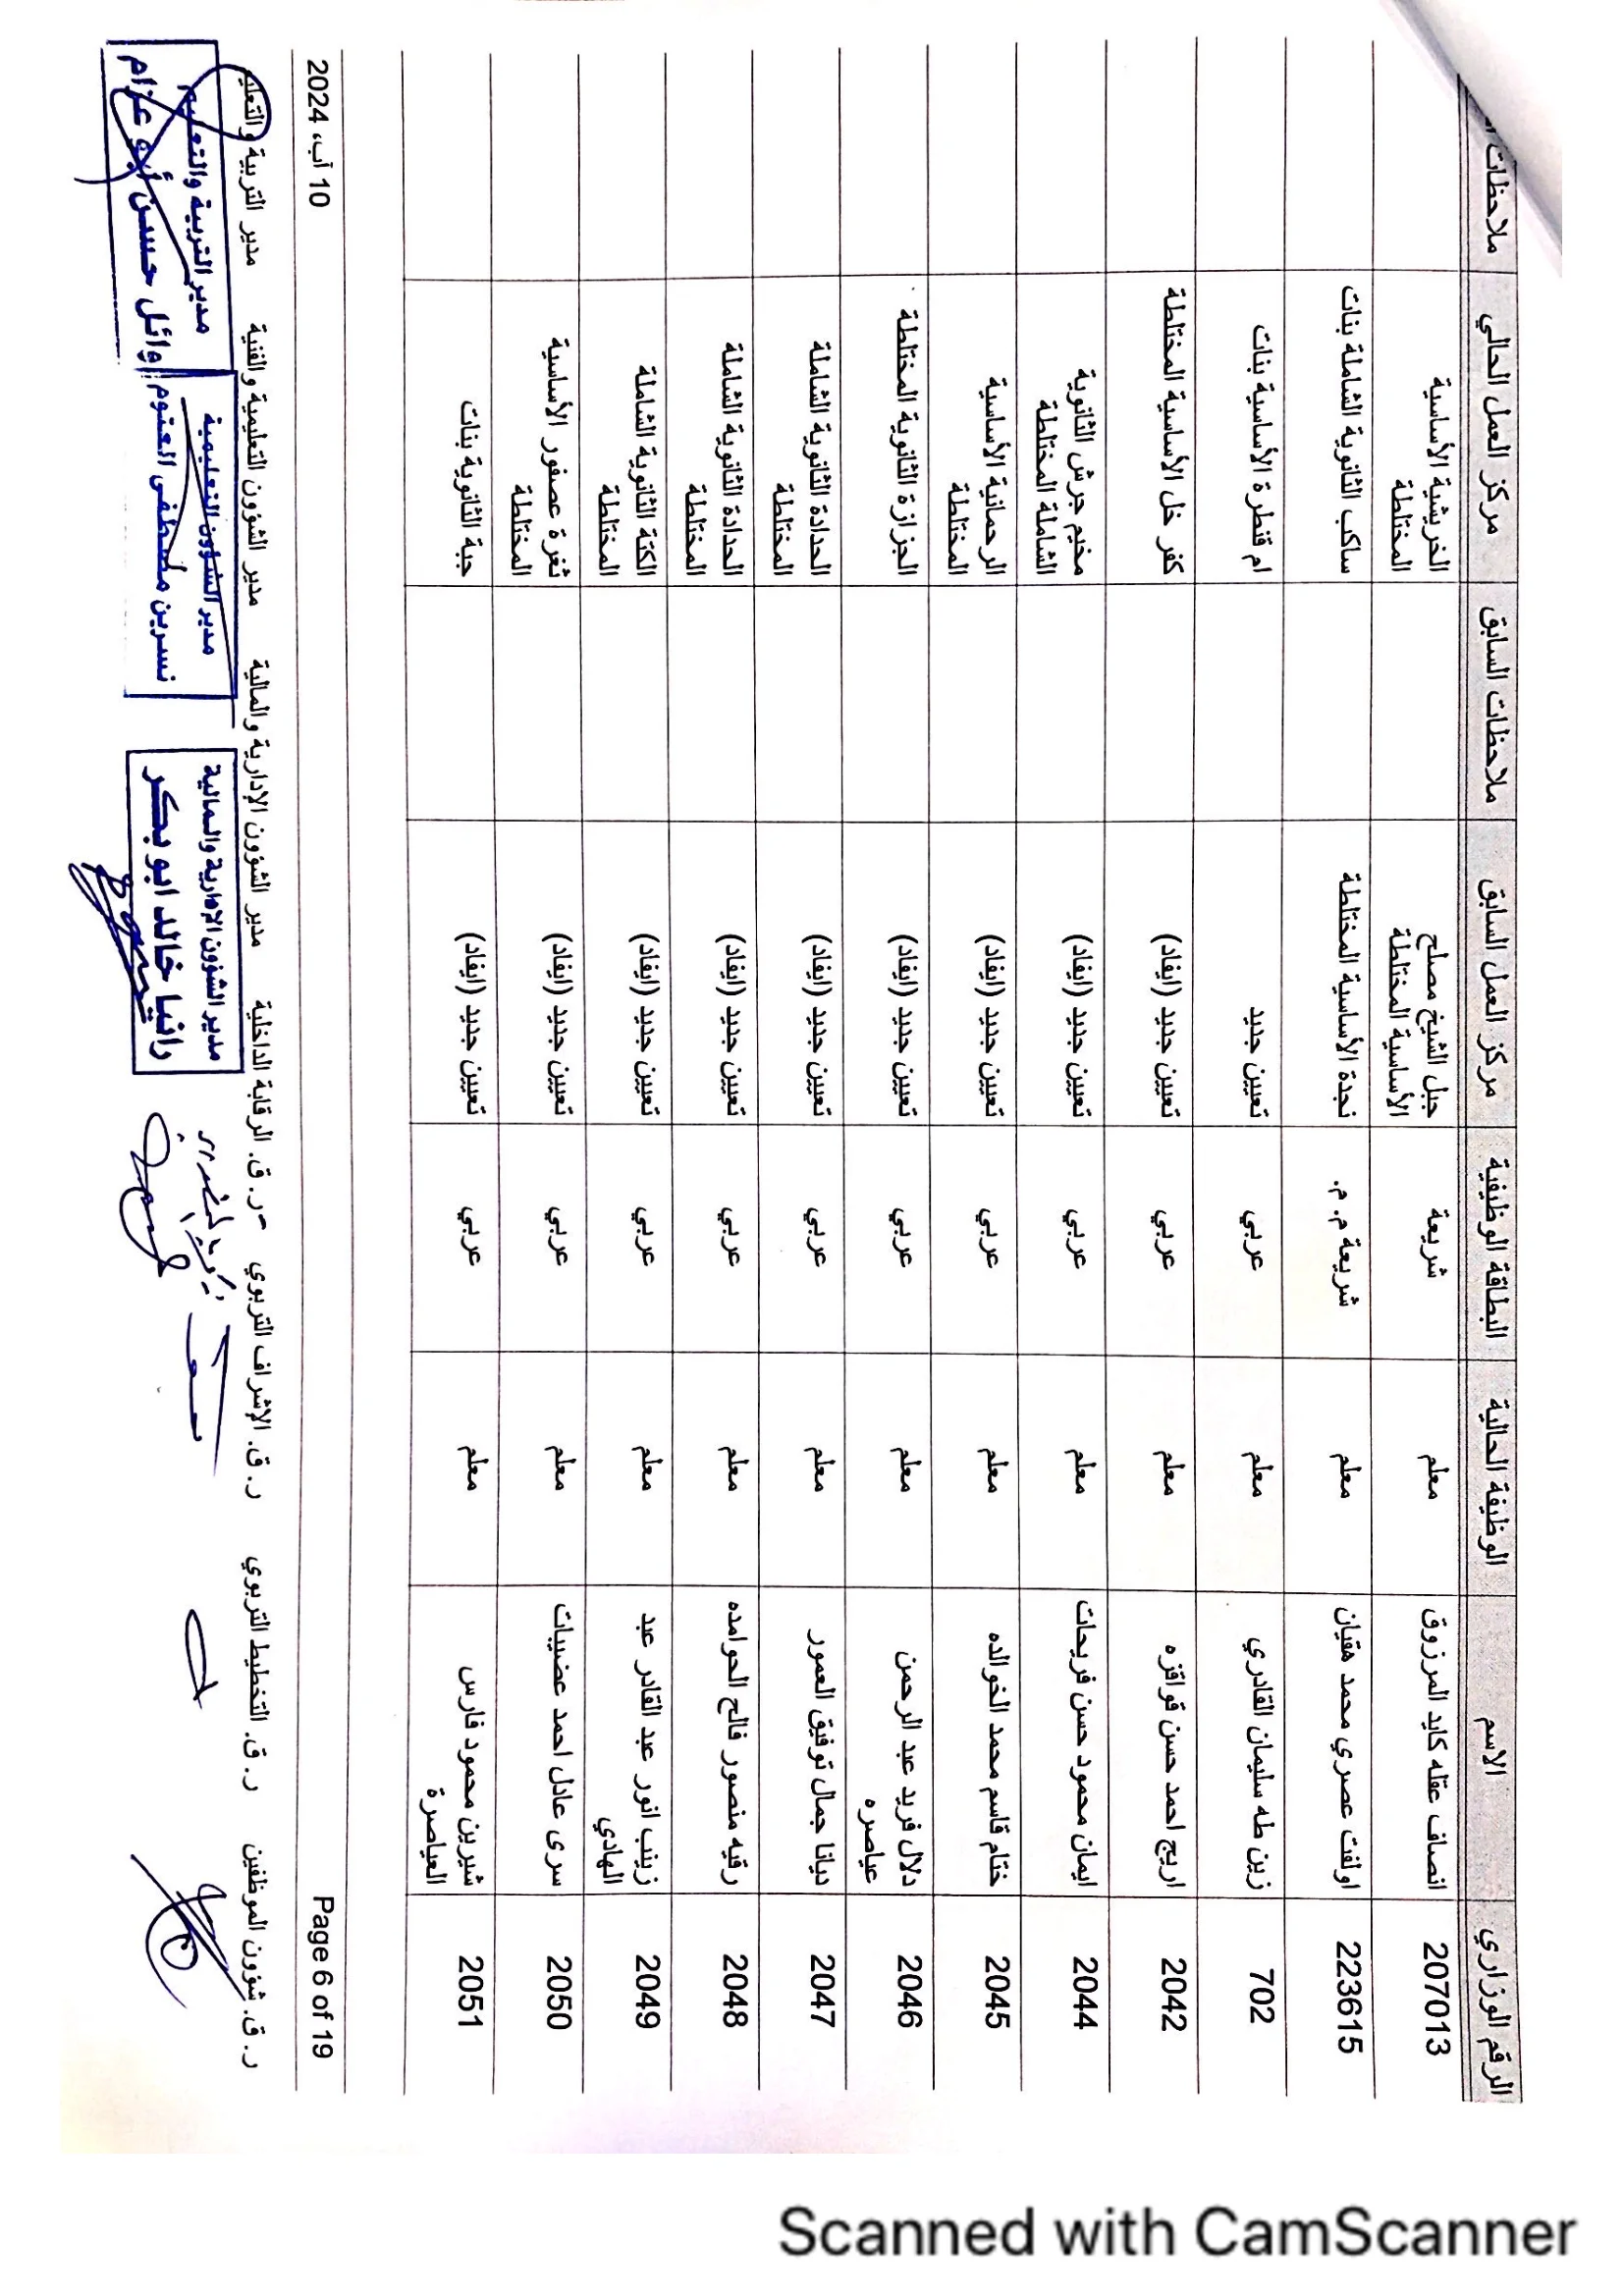 الرقم الوزاري الاسم الوظيفة الحالية البطاقة الوظيفية مركز العمل السابق ملاحظات السابق مركز العمل الحالي ملاحظات
207013 انصاف عقله كايد المرزوق معلم شريعة جبل الشيخ مصلح الخريشية الأساسية
الأساسية المختلطة المختلطة
223615 اولفت عصري محمد هقيان معلم شريعة م.م. نجدة الأساسية المختلطة ساكب الثانوية الشاملة بنات
702 زين طه سليمان القادري معلم عربي تعيين جديد ام قنطرة الأساسية بنات
2042 اريج احمد حسن قواقزه معلم عربي تعيين جديد (ايفاد) كفر خل الأساسية المختلطة
2044 ايمان محمود حسن فريحات معلم عربي تعيين جديد (ايفاد) مخيم جرش الثانوية
الشاملة المختلطة
2045 ختام قاسم محمد الخوالده معلم عربي تعيين جديد (ايفاد) الرحمانية الأساسية
المختلطة
2046 دلال فريد عبد الرحمن معلم عربي تعيين جديد (ايفاد) الجزازة الثانوية المختلطة
عياصره
2047 ديانا جمال توفيق العمور معلم عربي تعيين جديد (ايفاد) الحدادة الثانوية الشاملة
المختلطة
2048 رقيه منصور فالح الحوامده معلم عربي تعيين جديد (ايفاد) الحدادة الثانوية الشاملة
المختلطة
2049 زينب انور عبد القادر عبد معلم عربي تعيين جديد (ايفاد) الكتة الثانوية الشاملة
الهادي المختلطة
2050 سرى عادل احمد عضيبات معلم عربي تعيين جديد (ايفاد) ثغرة عصفور الأساسية
المختلطة
2051 شيرين محمود فارس معلم عربي تعيين جديد (ايفاد) جبة الثانوية بنات
العياصرة
Page 6 of 19 10 آب، 2024
ر.ق. شؤون الموظفين ر.ق. التخطيط التربوي ر.ق. الإشراف التربوي ر.ق. الرقابة الداخلية مدير الشؤون الإدارية والمالية مدير الشؤون التعليمية والفنية مدير التربية والتعليم
مدير الشؤون الإدارية والمالية
رانيا خالد ابو بكر
مدير الشؤون التعليمية
نسرين مصطفى العتوم
مدير التربية والتعليم
وائل حسن أبو عزام
Scanned with CamScanner